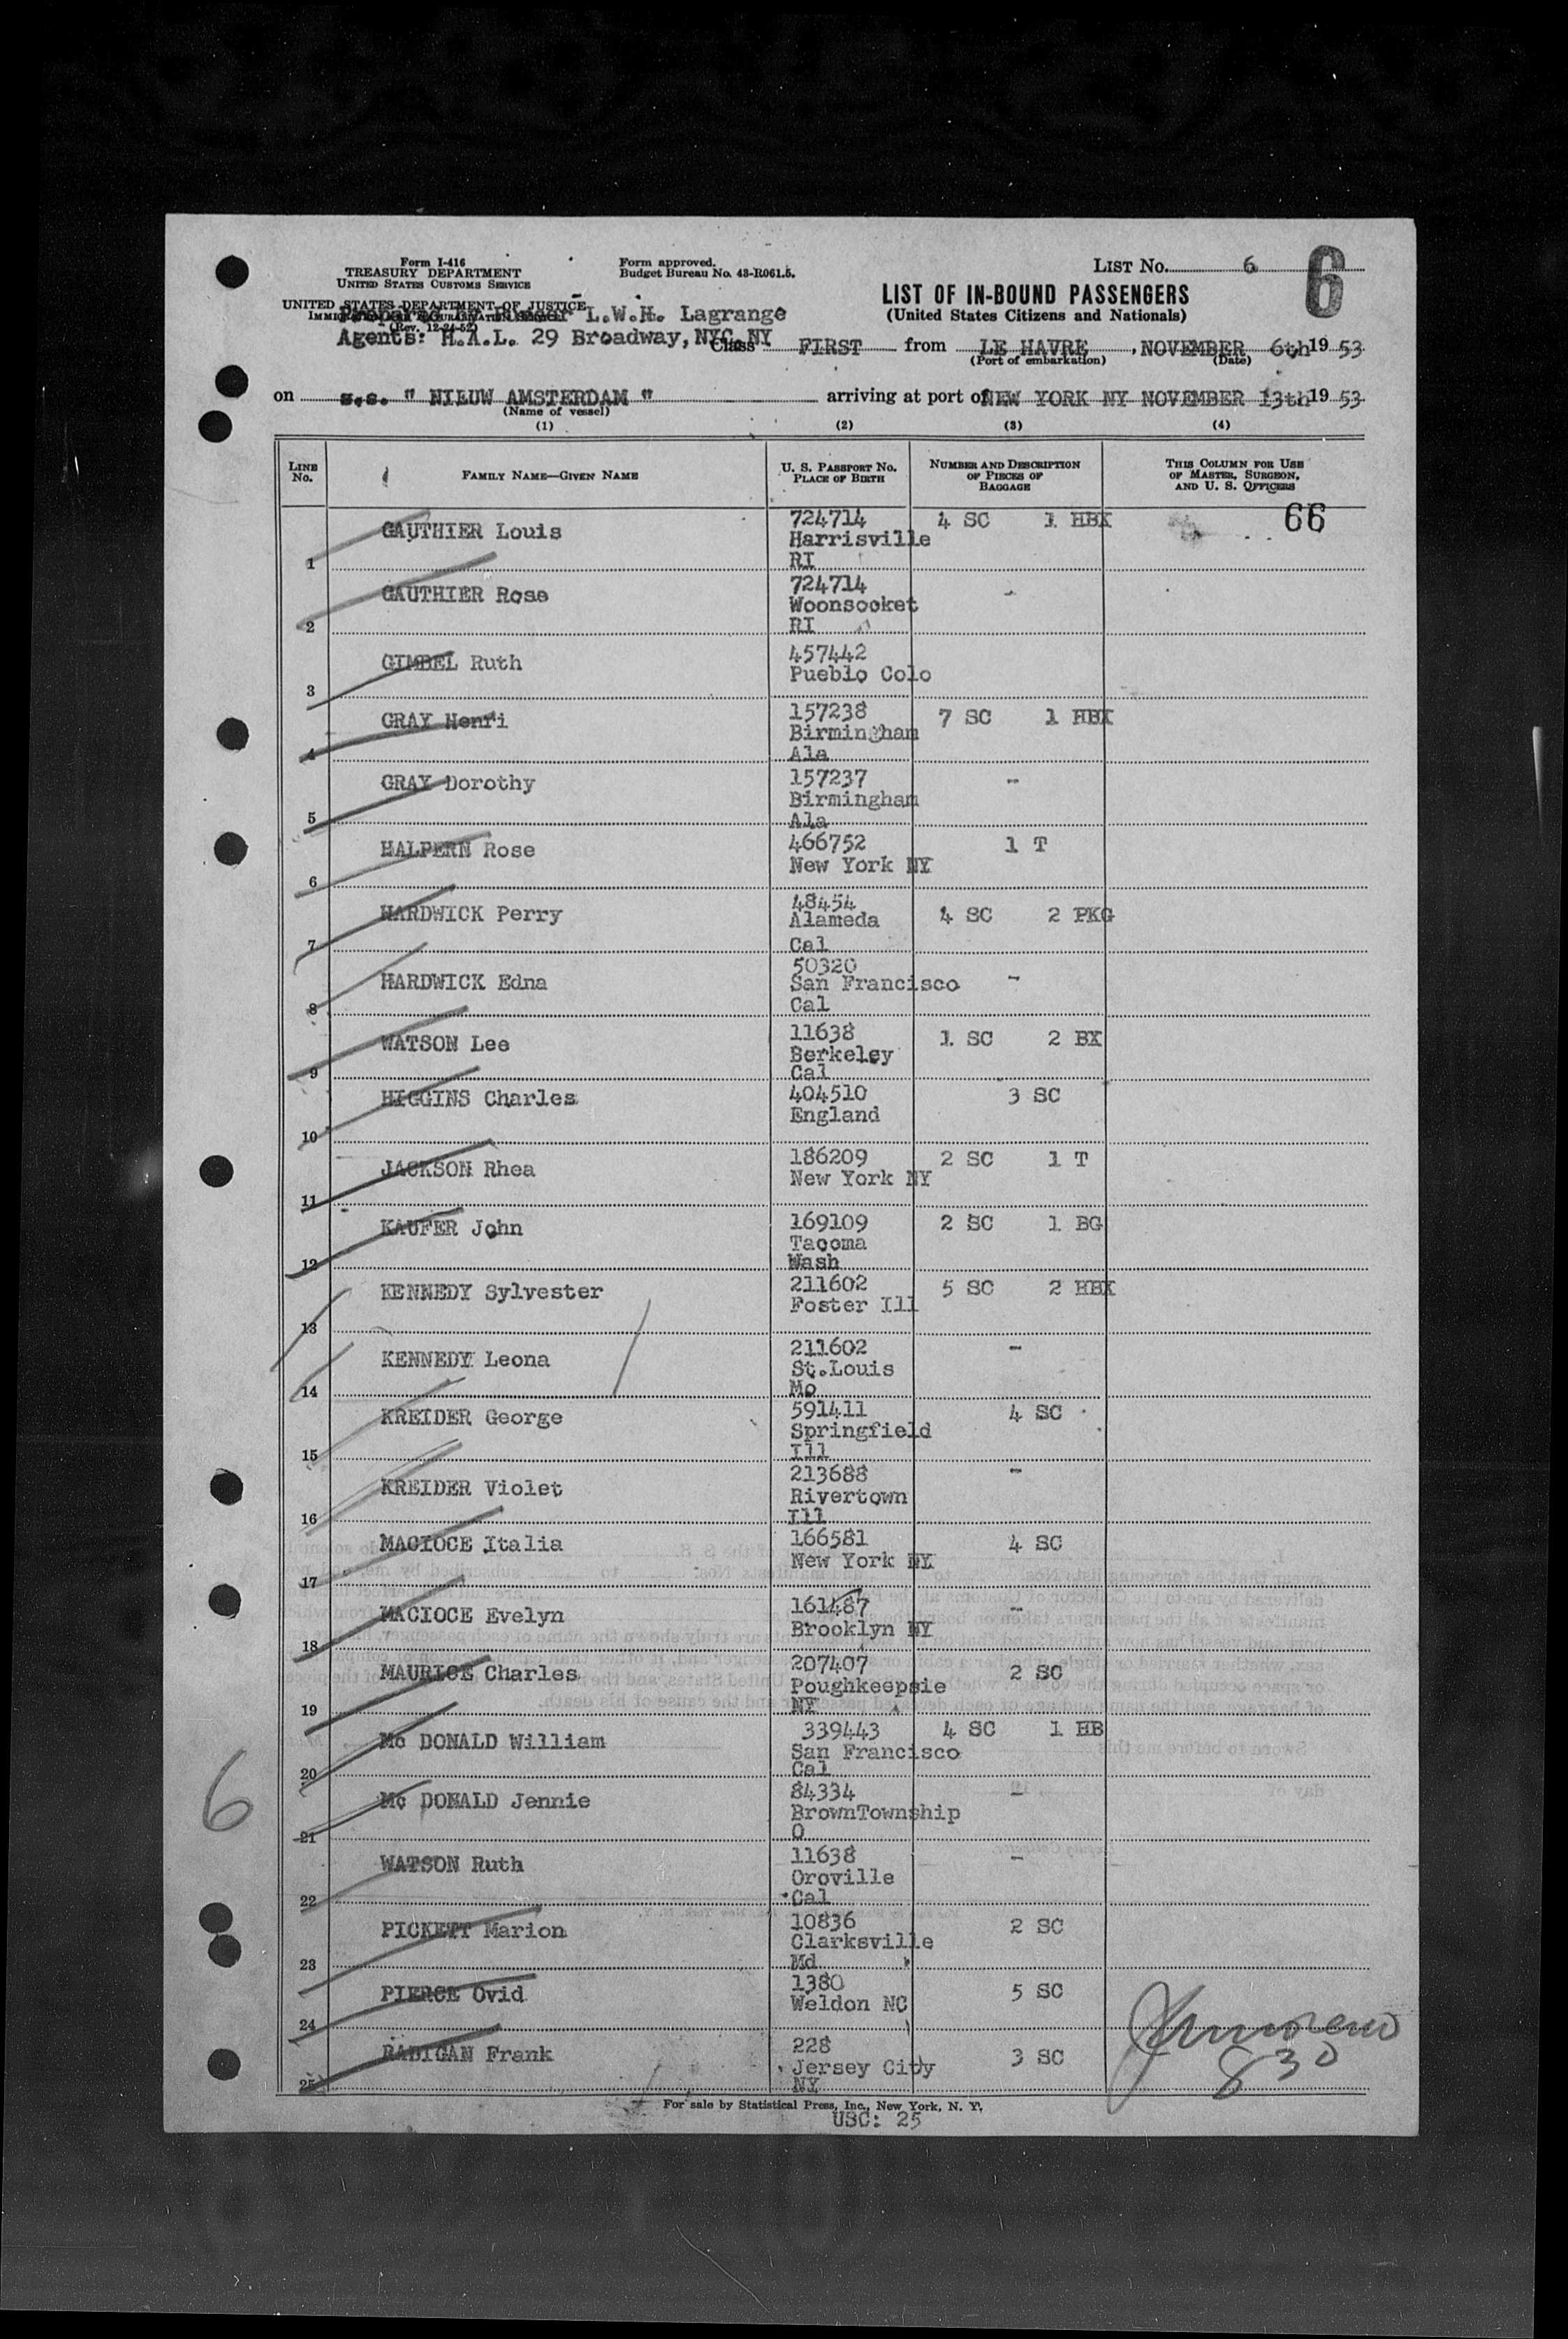 Form I-416
TREASURY DEPARTMENT
UNITED STATES CUSTOMS SERVICE
UNITED STATES DEPARTMENT OF JUSTICE
(Rev. 12-24-52)
Form approved.
Budget Bureau No. 43-R061.5.
L.W.H. Lagrange
Agents: H.A.L. 29 Broadway, NYC. NY
LIST No. 6
6
LIST OF IN-BOUND PASSENGERS
(United States Citizens and Nationals)
Class FIRST from LE HAVRE, NOVEMBER 6th 19 53
(Port of embarkation) (Date)
on s.s. " NIEUW AMSTERDAM " arriving at port of NEW YORK NY NOVEMBER 13th 19 53
(Name of vessel)
(1) (2) (3) (4)
LINE No. FAMILY NAME—GIVEN NAME U. S. PASSPORT No. PLACE OF BIRTH NUMBER AND DESCRIPTION OF PIECES OF BAGGAGE THIS COLUMN FOR USE OF MASTER, SURGEON, AND U. S. OFFICERS
66
1 GAUTHIER Louis 724714 Harrisville RI 4 SC 1 HBX
2 GAUTHIER Rose 724714 Woonsocket RI -
3 GIMBEL Ruth 457442 Pueblo Colo
4 GRAY Henri 157238 Birmingham Ala 7 SC 1 HBX
5 GRAY Dorothy 157237 Birmingham Ala -
6 HALPERN Rose 466752 New York NY 1 T
7 HARDWICK Perry 48454 Alameda Cal 4 SC 2 PKG
8 HARDWICK Edna 50320 San Francisco Cal -
9 WATSON Lee 11638 Berkeley Cal 1 SC 2 BX
10 HIGGINS Charles 404510 England 3 SC
11 JACKSON Rhea 186209 New York NY 2 SC 1 T
12 KAUFER John 169109 Tacoma Wash 2 SC 1 BG
13 KENNEDY Sylvester 211602 Foster Ill 5 SC 2 HBX
14 KENNEDY Leona 211602 St.Louis Mo -
15 KREIDER George 591411 Springfield Ill 4 SC
16 KREIDER Violet 213688 Rivertown Ill -
17 MACIOCE Italia 166581 New York NY 4 SC
18 MACIOCE Evelyn 161487 Brooklyn NY -
19 MAURICE Charles 207407 Poughkeepsie NY 2 SC
20 Mc DONALD William 339443 San Francisco Cal 4 SC 1 HB
21 Mc DONALD Jennie 84334 BrownTownship O -
22 WATSON Ruth 11638 Oroville Cal -
23 PICKETT Marion 10836 Clarksville Md 2 SC
24 PIERCE Ovid 1380 Weldon NC 5 SC
25 RADIGAN Frank 228 Jersey City NY 3 SC
6
830
For sale by Statistical Press, Inc., New York, N. Y.
USC: 25